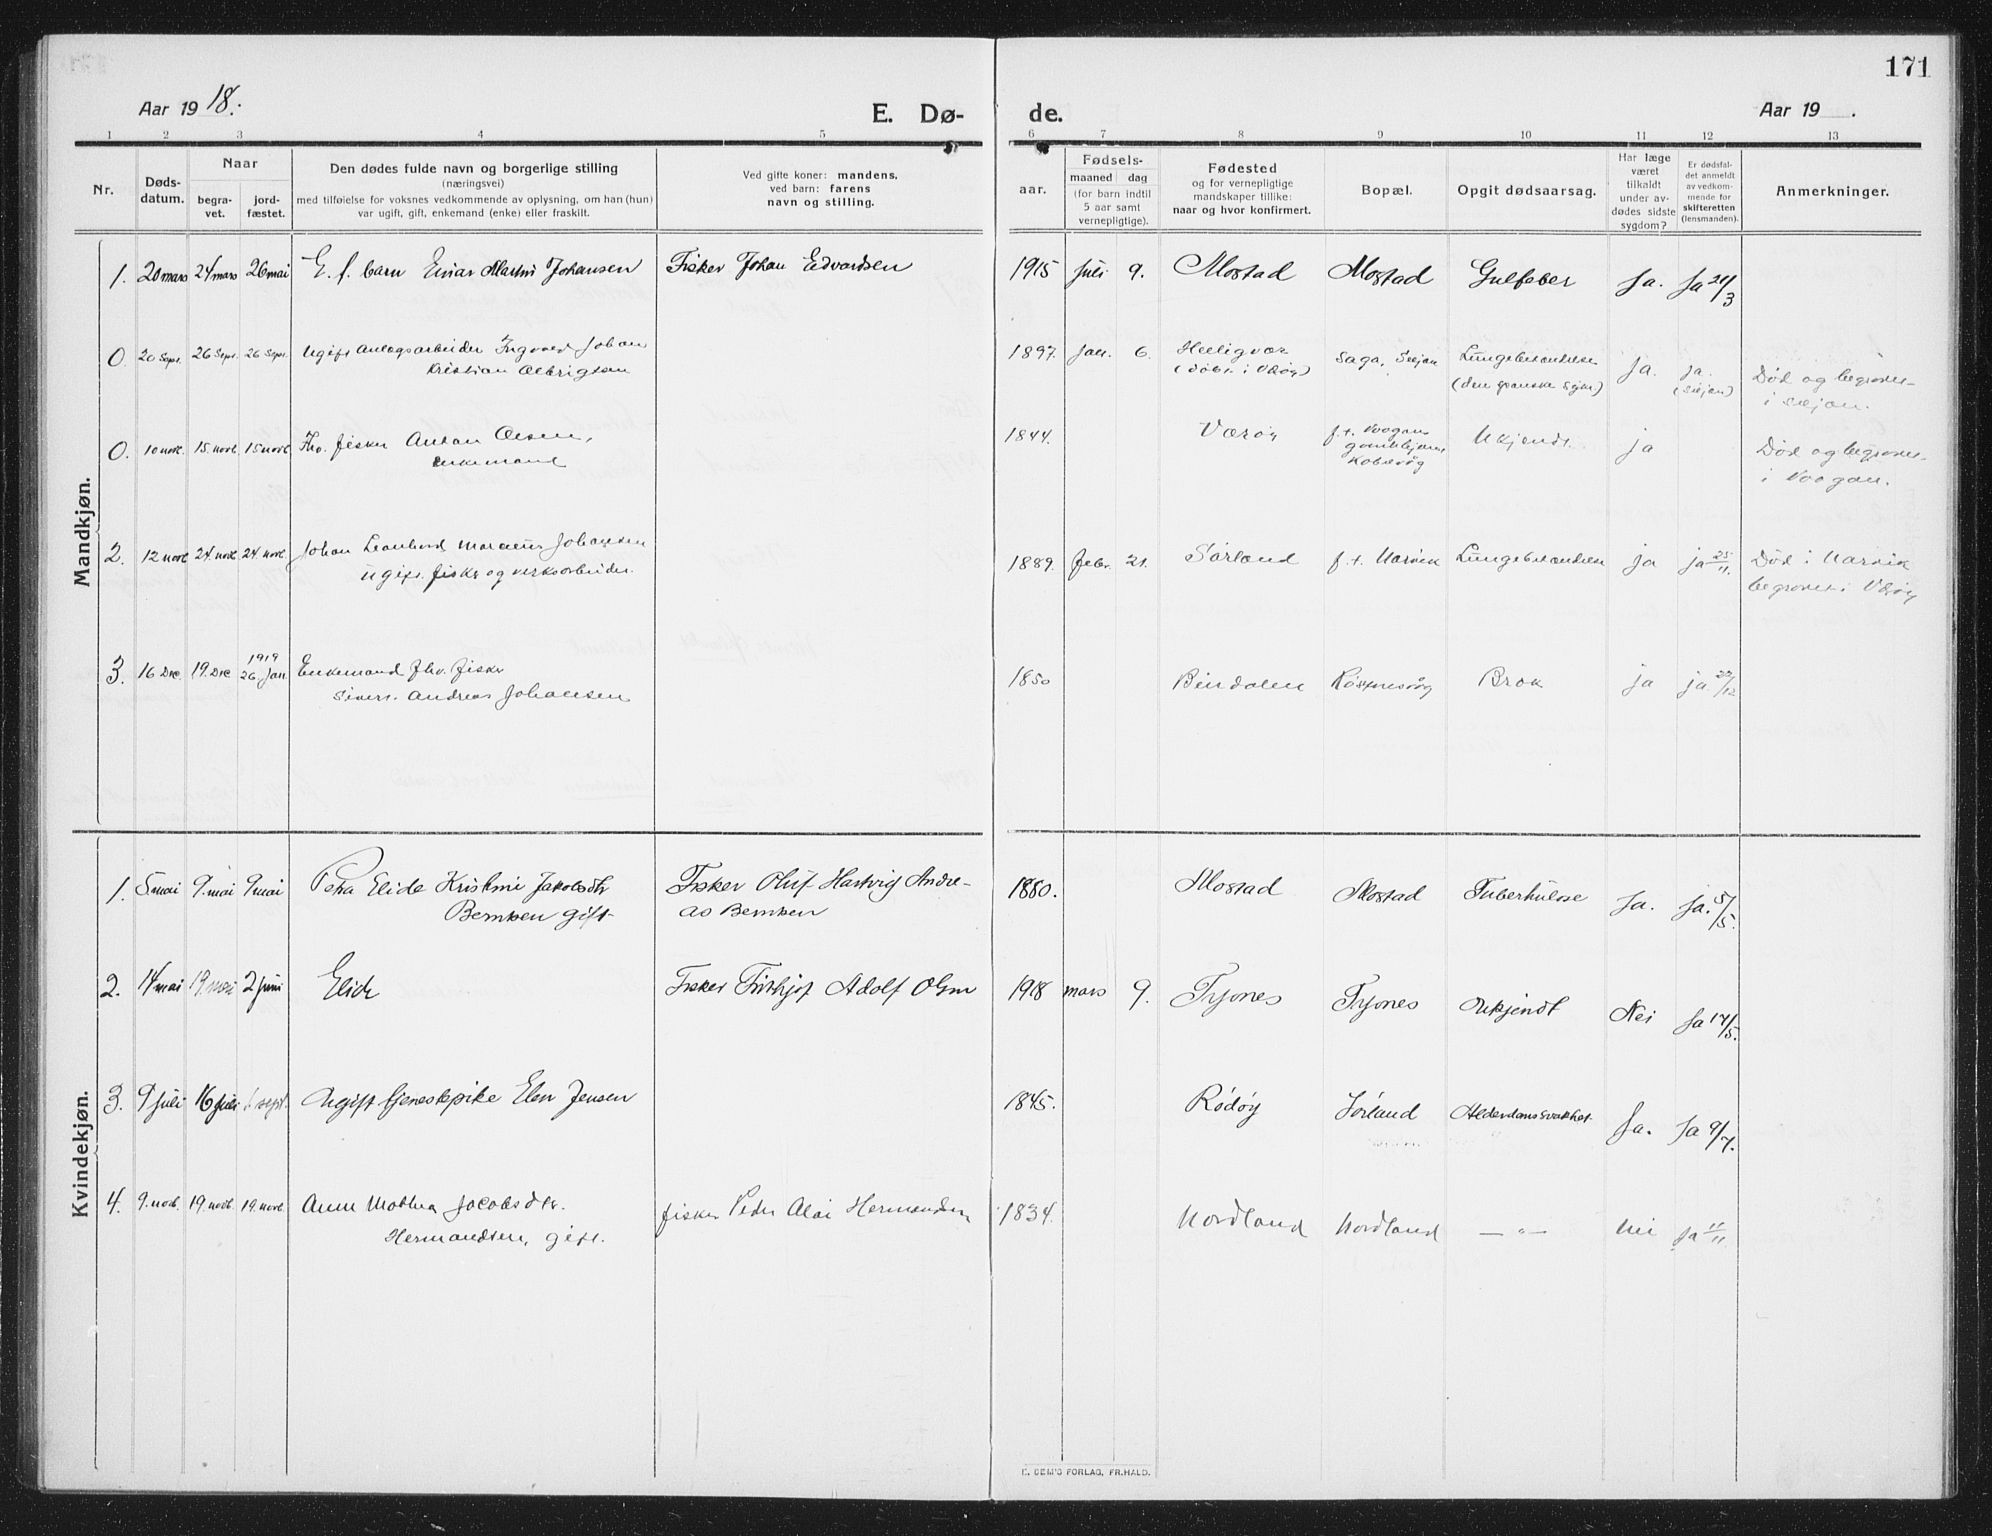 171
Aar 1918.
E. Dø-
de.
Aar 19 .
1 2 3 4 5 6 7 8 9 10 11 12 13
Nr.
Døds-
datum.
Naar
begra-
vet.
jord-
fæstet.
Den dødes fulde navn og borgerlige stilling
(næringsvei)
med tilføielse for voksnes vedkommende av oplysning, om han (hun)
var ugift, gift, enkemand (enke) eller fraskilt.
Ved gifte koner: mandens,
ved barn: farens
navn og stilling.
aar.
Fødsels-
maaned dag
(for barn indtil
5 aar samt
vernepligtige).
Fødested
og for vernepligtige
mandskaper tillike:
naar og hvor konfirmert.
Bopæl.
Opgit dødsaarsag.
Har læge
været
tilkaldt
under av-
dødes sidste
sygdom?
Er dødsfal-
det anmeldt
av vedkom-
mende for
skifteretten
(lensmanden).
Anmerkninger.
Mandkjøn.
1. 20 mars 24 mars 26 mai E. f. barn Einar Martin Johansen Fisker Johan Edvardsen 1915 Juli 9. Mostad Mostad Gulfeber Ja. Ja 21/3
0 20 Sept. 26 Sept. 26 Sept. Ugift Anlægsarbeider Ingvald Johan 1897. Jan. 6. Helligvær Saga, Ja. ja.
Kristian Albrigtsen (døbt i Værøy) (den spanske syke) Død og begravet
i
0. 10 nov. 15. novb 15 novb Fhv. fisker Anton Olsen, 1844. Værøy f. t. Vaagan Ukjendt. ja
enkemand gamlehjem, Død og begravet
Kabelvåg i Vaagan.
2. 12 novb 24. novb 24. novb. Johan Leonhard Johansen 1889. Febr. 21. Sørland f. t. Narvik Lungebetændelse ja ja 25/11. Død i Narvik
ugift. fisker og verksarbeider. begravet i Værøy
3. 16 Dec. 19. Dec 1919 26. Jan Enkemand fhv. fisker 1850 Bindalen Røssnesvåg Brok ja ja 22/12
Sivert Andreas Johansen
Kvindekjøn.
1. 5 mai 9. mai 9 mai Petra Elide Kristine Jakobsdtr Fisker Oluf Hartvig Andre- 1880. Mostad Mostad Tuberkulose Ja. Ja. 5/5.
Berntsen gift as Berntsen
2. 14 mai 19. mai 2 juni Elide Fisker Frithjof Adolf Olsen 1918 mars 9. Tyvnes Tyvnes Ukjendt Nei Ja 17/5.
3. 9 juli 16 juli 1 sept. Ugift tjenestepike Elen Jensen 1845. Rødøy Sørland Alderdomssvakhet Ja. Ja 9/7.
4. 9. novb. 19. novb. 19. novb. Anne Mathea Jacobsdtr. fisker Peder Alai Hermandsen 1834. Nordland Nordland — " — Nei Ja 11/11
Hermandsen, gift.
E. SEM'S FORLAG, FR.HALD.